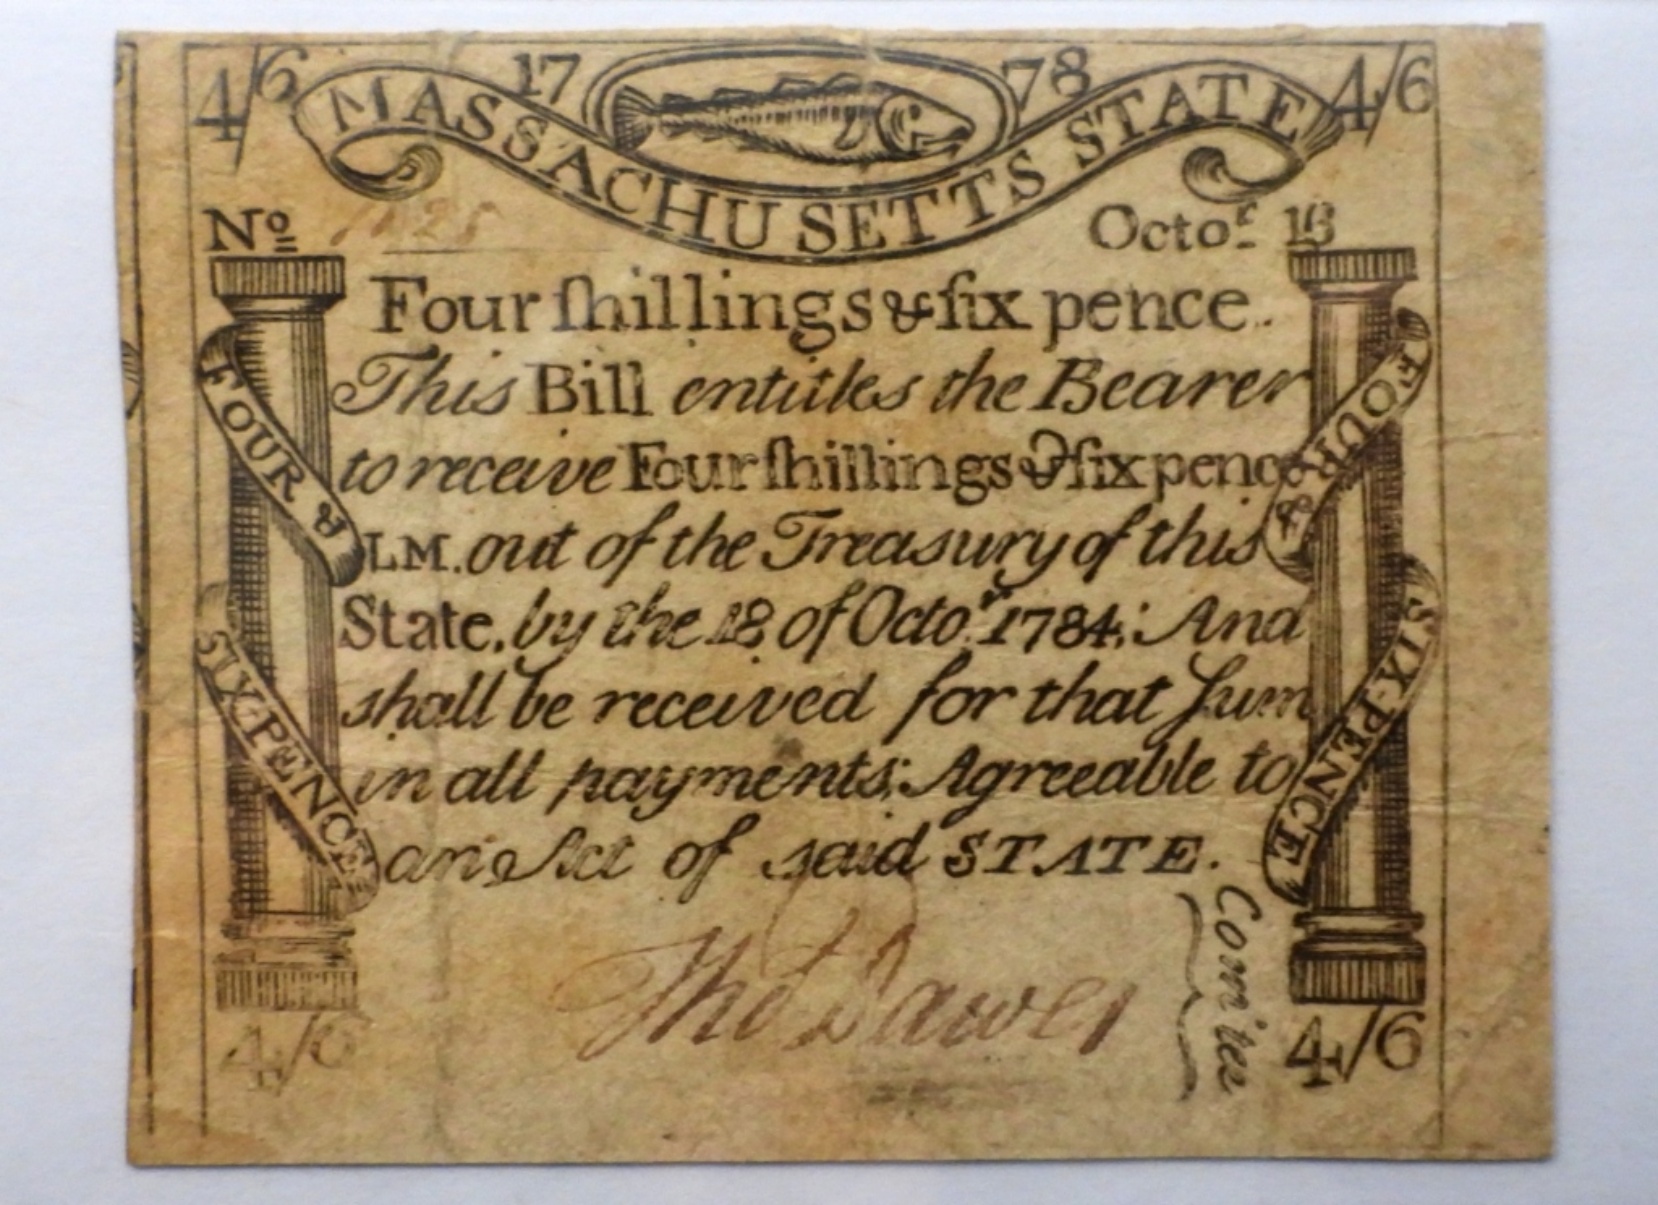 4/6 17 78 4/6
MASSACHUSETTS STATE
Nº Octoʳ 18
Four ſhillings & ſix pence.
This Bill entitles the Bearer
to receive Four ſhillings & ſix pence
LM. out of the Treasury of this
State, by the 18 of Octoʳ. 1784; And
shall be received for that Sum
in all payments; Agreeable to
an Act of said STATE.
FOUR &
SIX-PENCE
FOUR &
SIX-PENCE
Thoˢ Dawes
Com'tee
4/6 4/6